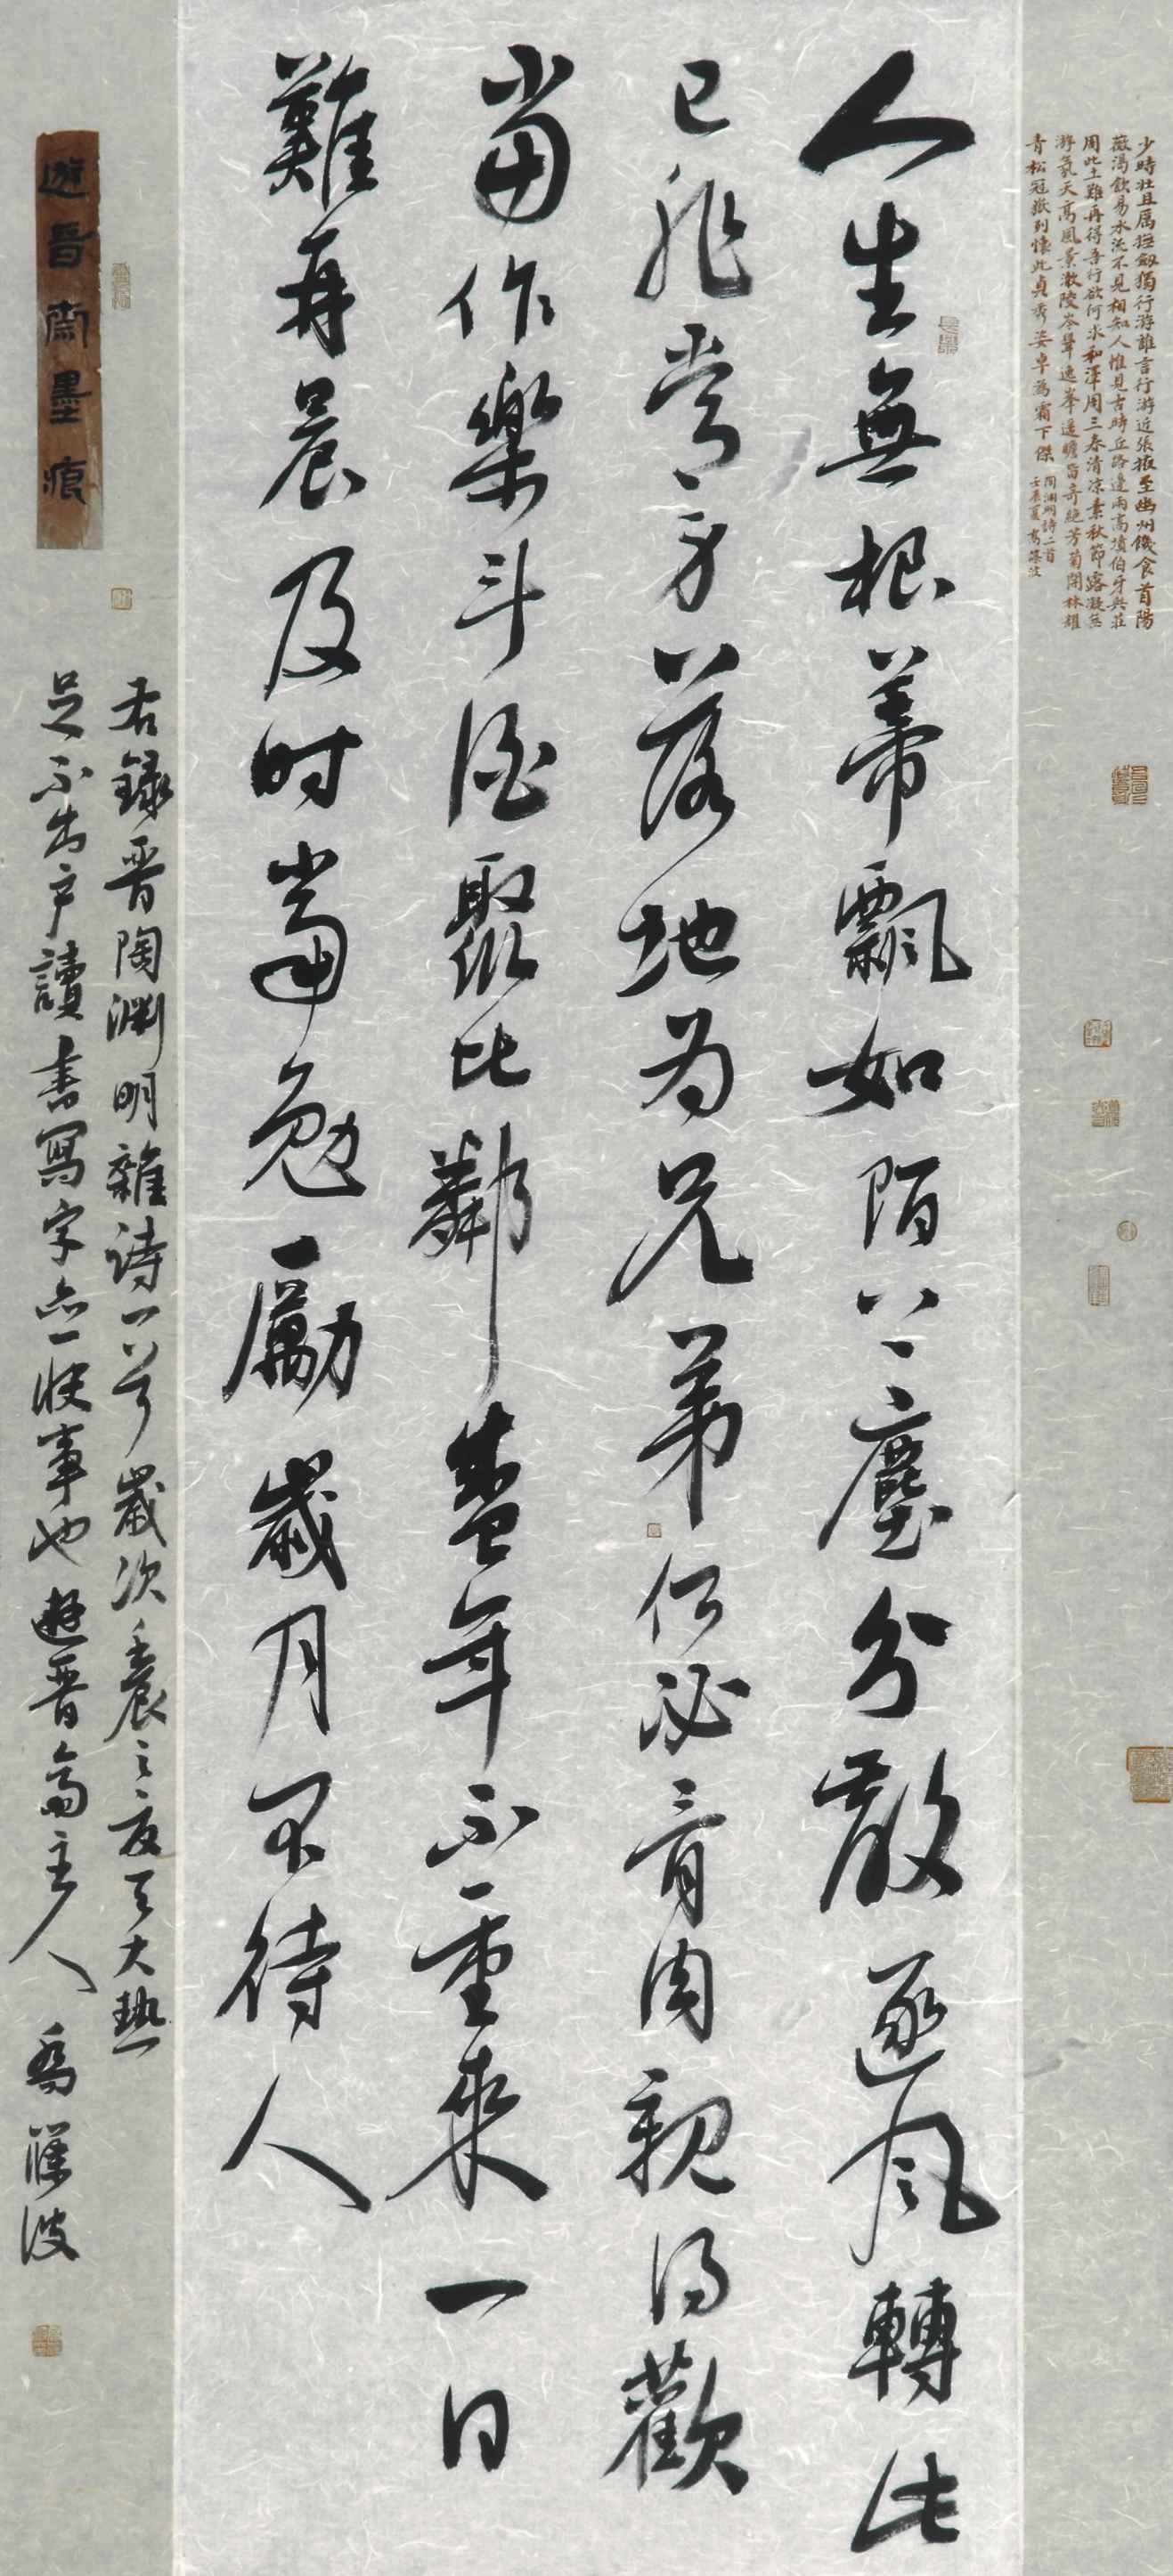 少時壯且厲撫劔獨行游誰言行游近張掖至幽州饑食首陽
薇渴飲易水流不見相知人惟見古時丘路邊兩高墳伯牙與莊
周此士難再得吾行欲何求和澤周三春清凉素秋節露凝無
游氛天高風景澈陵岑聳逸峯遥瞻皆奇絶芳菊開林耀
青松冠巖列懷此貞秀姿卓為霜下傑
陶淵明詩二首
壬辰夏
人生無根蒂飄如陌上塵分散逐風轉此
已非常身落地為兄弟何必骨肉親得歡
當作樂斗酒聚比鄰盛年不重來一日
難再晨及時當勉勵歲月不待人
右録晋陶淵明雜詩一首歲次壬辰之夏天大热
足不出户讀書寫字亦一快事也遊晋齋主人
遊晋齋墨痕